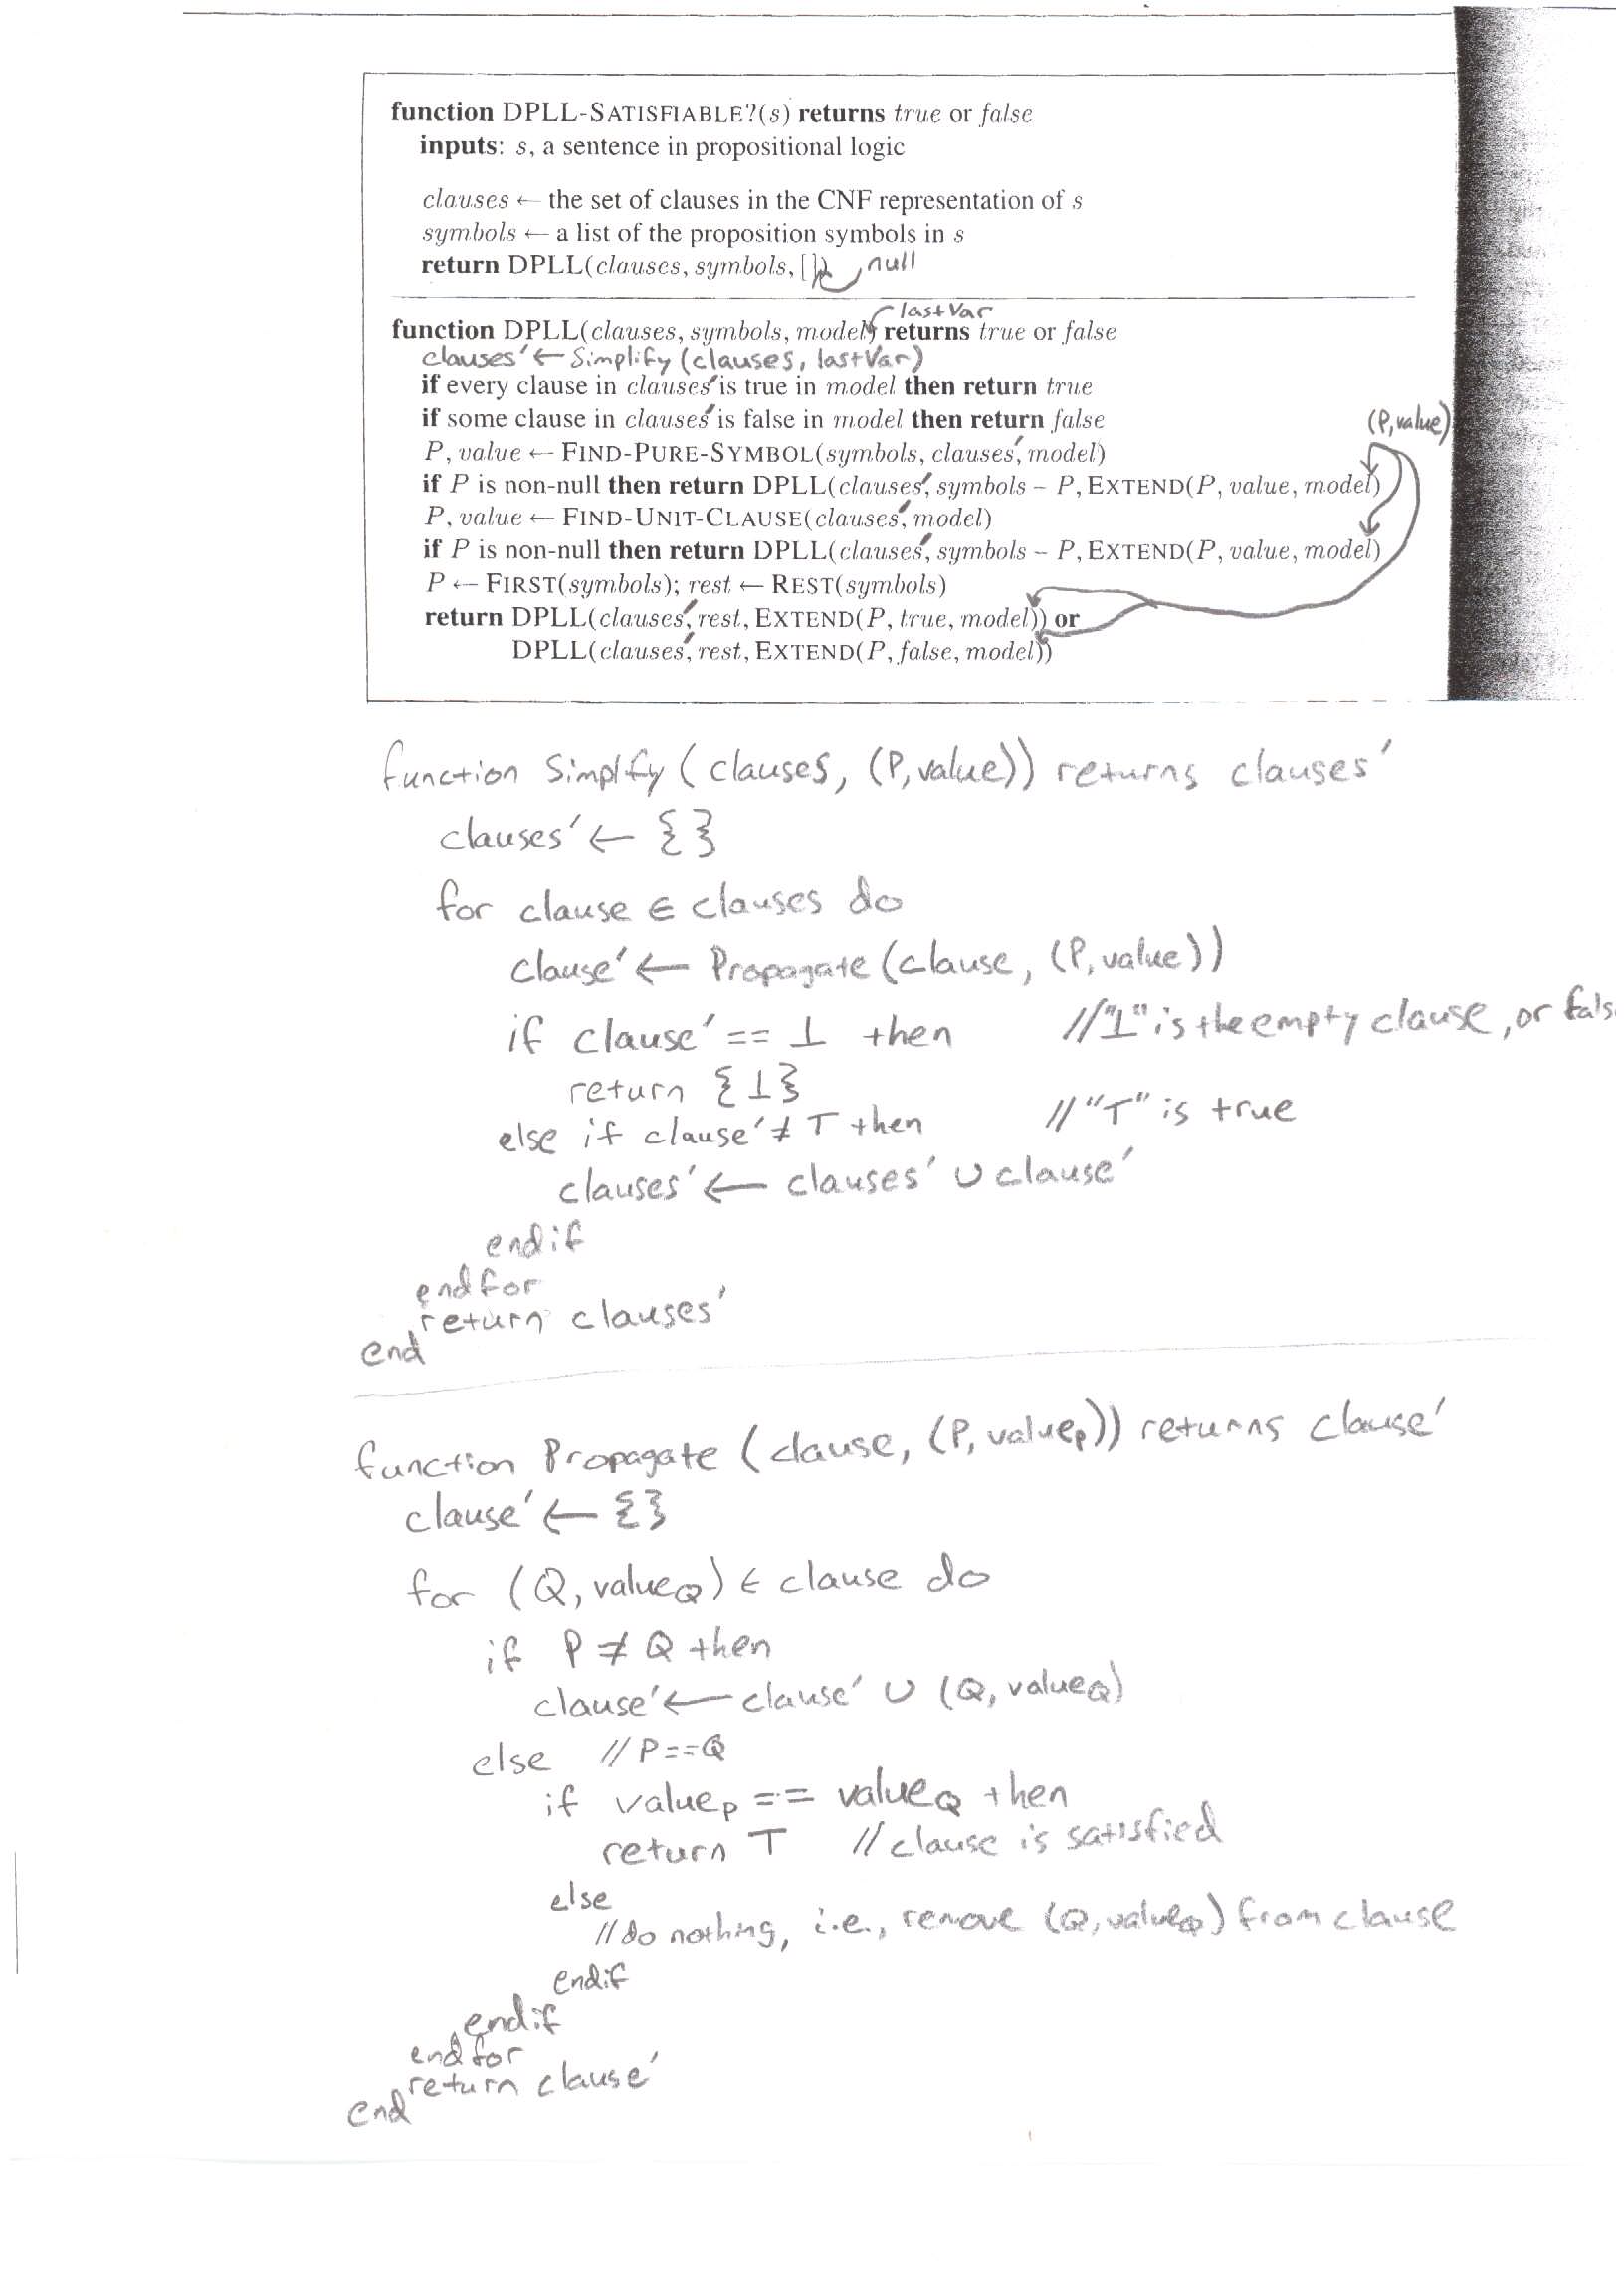 function DPLL-SATISFIABLE?(s) returns true or false
inputs: s, a sentence in propositional logic
clauses ← the set of clauses in the CNF representation of s
symbols ← a list of the proposition symbols in s
return DPLL(clauses, symbols, []) , null
, lastVar
function DPLL(clauses, symbols, model) returns true or false
clauses' ← Simplify (clauses, lastVar)
if every clause in clauses' is true in model then return true
if some clause in clauses' is false in model then return false
(P, value)
P, value ← FIND-PURE-SYMBOL(symbols, clauses', model)
if P is non-null then return DPLL(clauses', symbols – P, EXTEND(P, value, model)
P, value ← FIND-UNIT-CLAUSE(clauses', model)
if P is non-null then return DPLL(clauses', symbols – P, EXTEND(P, value, model)
P ← FIRST(symbols); rest ← REST(symbols)
return DPLL(clauses', rest, EXTEND(P, true, model)) or
DPLL(clauses', rest, EXTEND(P, false, model))
function Simplfy (clauses, (P, value)) returns clauses'
clauses' ← {}
for clause ∈ clauses do
clause' ← Propagate (clause, (P, value))
if clause' == ⊥ then //"⊥" is the empty clause, or fals
return {⊥}
else if clause' ≠ T then // "T" is true
clauses' ← clauses' ∪ clause'
endif
endfor
return clauses'
end
function Propagate (clause, (P, valueₚ)) returns clause'
clause' ← {}
for (Q, value_Q) ∈ clause do
if P ≠ Q then
clause' ← clause' ∪ (Q, value_Q)
else // P==Q
if valueₚ == value_Q then
return T // clause is satisfied
else
// do nothing, i.e., remove (Q, value_Q) from clause
endif
endif
endfor
return clause'
end